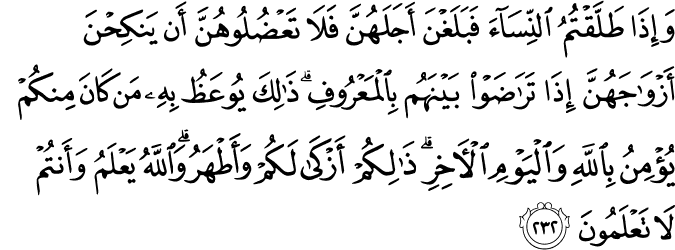 وَإِذَا طَلَّقْتُمُ ٱلنِّسَآءَ فَبَلَغْنَ أَجَلَهُنَّ فَلَا تَعْضُلُوهُنَّ أَن يَنكِحْنَ
أَزْوَٰجَهُنَّ إِذَا تَرَٰضَوْا۟ بَيْنَهُم بِٱلْمَعْرُوفِ ۗ ذَٰلِكَ يُوعَظُ بِهِۦ مَن كَانَ مِنكُمْ
يُؤْمِنُ بِٱللَّهِ وَٱلْيَوْمِ ٱلْـَٔاخِرِ ۗ ذَٰلِكُمْ أَزْكَىٰ لَكُمْ وَأَطْهَرُ ۗ وَٱللَّهُ يَعْلَمُ وَأَنتُمْ
لَا تَعْلَمُونَ ٢٣٢